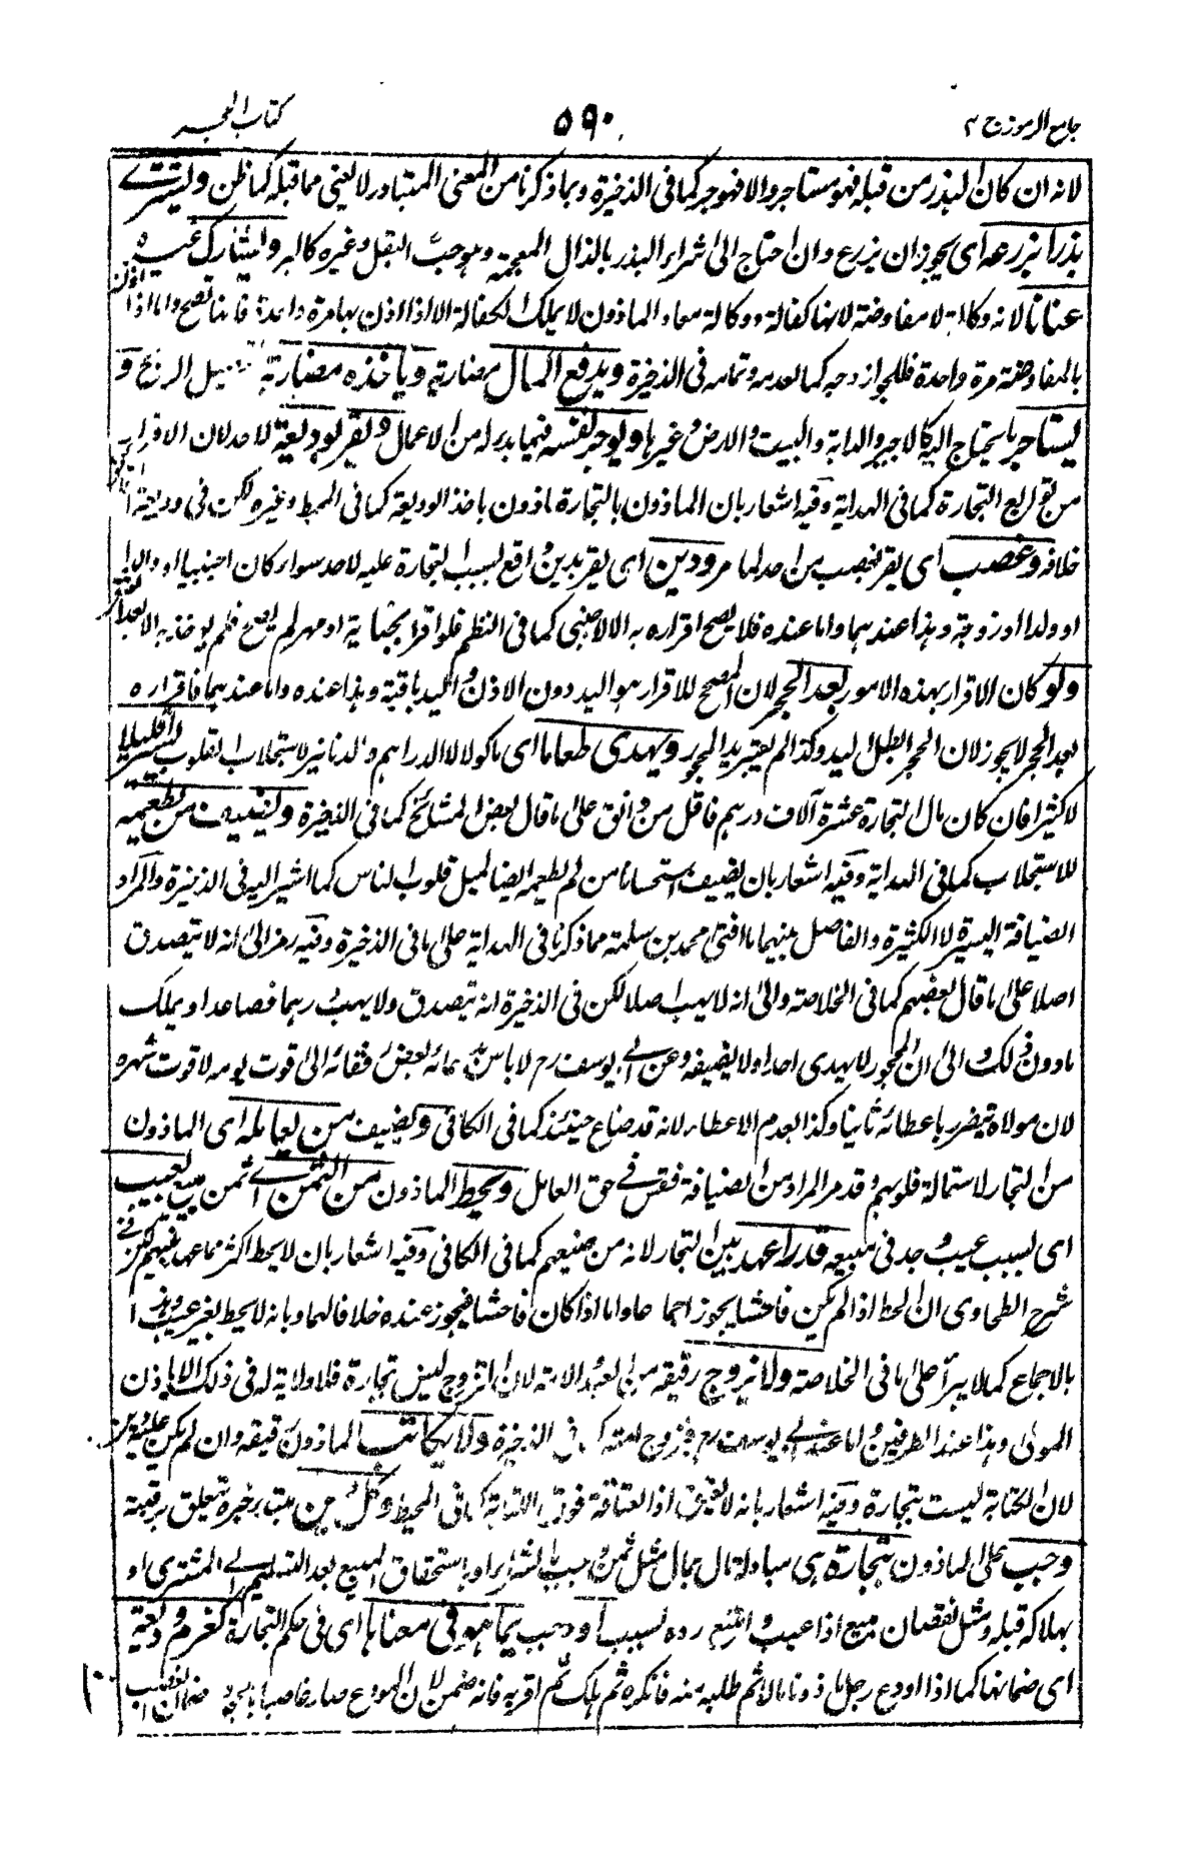 جامع الرموز ج ٢ ٥٩٠ كتاب الحجر
لانه ان كان البذر من قبله فهو مستاجر والا فهو جر كما فى الذخيرة وبما ذكرنا من المعنى المتبادر لا يغنى مما قبله كما ظن ويشترى
بذرا يزرعه اى يجوز ان يزرع وان احتاج الى شراء البذر بالذال المعجمة وهو حب البقل وغيره كالبر ويشارك غيره
عنانا لانه وكالة لا مفاوضة لانها كفالة ووكالة معا والماذون لا يملك الكفالة الا اذا اذن بها مرة واحدة فانها تصح واما اذا اذن
بالمفاوضة مرة واحدة فللجواز وجه كما لعدمه وتمامه فى الذخيرة ويدفع المال مضاربة وياخذه مضاربة لتحصيل الربح و
يستاجر ما يحتاج اليه كالاجير والدابة والبيت والارض وغيرها ويوجر نفسه فيما بدا له من الاعمال ويقر بوديعة لاحد لان الاقرار
من توابع التجارة كما فى الهداية وفيه اشعار بان الماذون بالتجارة ماذون باخذ الوديعة كما فى المحيط وغيره لكن فى وديعة
خلافه وغصب اى يقر بغصب من احد لما مر ودين اى يقر بدين واقع بسبب التجارة عليه لاحد سواء كان اجنبيا او والدا
او ولدا او زوجة وهذا عندهما واما عنده فلا يصح اقراره به الا لاجنبى كما فى النظم فلو اقر بجناية او مهر لم يصح فلم يوخذ به الا بعد العتق
ولو كان الاقرار بهذه الامور بعد الحجر لان المصحح للاقرار هو اليد دون الاذن واليد باقية وهذا عنده واما عندهما فاقراره
بعد الحجر لا يجوز لان الحجر ابطل اليد وكذا لم يعتبر يد المحجور ويهدى طعاما اى ماكولا لا الدراهم والدنانير لاستجلاب القلوب يسيرا قليلا
لا كثيرا فان كان مال التجارة عشرة آلاف درهم فاقل من دانق على ما قال بعض المشائخ كما فى الذخيرة ويضيف من يطعمه
للاستجلاب كما فى الهداية وفيه اشعار بان يضيف استحسانا من لم يطعمه ايضا لميل قلوب الناس كما اشير اليه فى الذخيرة والمراد
الضيافة اليسيرة لا الكثيرة والفاصل بينهما ما افتى محمد بن سلمة مما ذكرنا فى الهداية على ما فى الذخيرة وفيه رمز الى انه لا يتصدق
اصلا على ما قال بعضهم كما فى الخلاصة والى انه لا يهب اصلا لكن فى الذخيرة انه يتصدق ولا يهب درهما فصاعدا ويملك
ما دون ذلك والى ان المحجور لا يهدى احدا ولا يضيفه وعن ابى يوسف رح لا باس بدعائه بعض رفقائه الى قوت يومه لا قوت شهره
لان مولاه يتضرر باعطائه ثانيا وكذا لعدم الاعطاء لانه قد ضاع حينئذ كما فى الكافى ويضيف من يعامله اى الماذون
من التجار لاستمالة قلوبهم وقد مر المراد من الضيافة فقس فى حق العامل ويحط الماذون من الثمن اى ثمن مبيع لعيب
اى بسبب عيب وجد فى مبيعه قدرا عهد بين التجار لانه من صنيعهم كما فى الكافى وفيه اشعار بان لا يحط اكثر مما عهد بينهم لكن فى
شرح الطحاوى ان الحط اذا لم يكن فاحشا يجوز اجماعا واما اذا كان فاحشا فيجوز عنده خلافا لهما وبانه لا يحط بغير عيب وهذا
بالاجماع كما لا يبرأ على ما فى الخلاصة ولا يزوج رقيقه من العبد والامة لان التزوج ليس تجارة فلا ولاية له فى ذلك الا باذن
المولى وهذا عند الطرفين واما عند ابى يوسف رح فيزوج امته كما فى الذخيرة ولا يكاتب الماذون رقيقه وان لم يكن عليه دين
لان الكتابة ليست بتجارة وفيه اشعار بانه لا يعتق اذ العتاقة فوق الكتابة كما فى المحيط وكل دين مبتدا خبره يتعلق برقبته
وجب على الماذون بتجارة هى مبادلة مال بمال مثل ثمن وجب بالشراء او باستحقاق المبيع بعد التسليم الى المشترى او
بهلاكه قبله ومثل نقصان مبيع اذا عيب وامتنع رده بسبب او وجب بما هو فى معناها اى فى حكم التجارة كغرم وديعة
اى ضمانها كما اذا اودع رجل ماذونا مالا ثم طلبه منه فانكره ثم هلك ثم اقر به فانه ضمن لان المودع صار غاصبا بالجحود ضمان الغصب